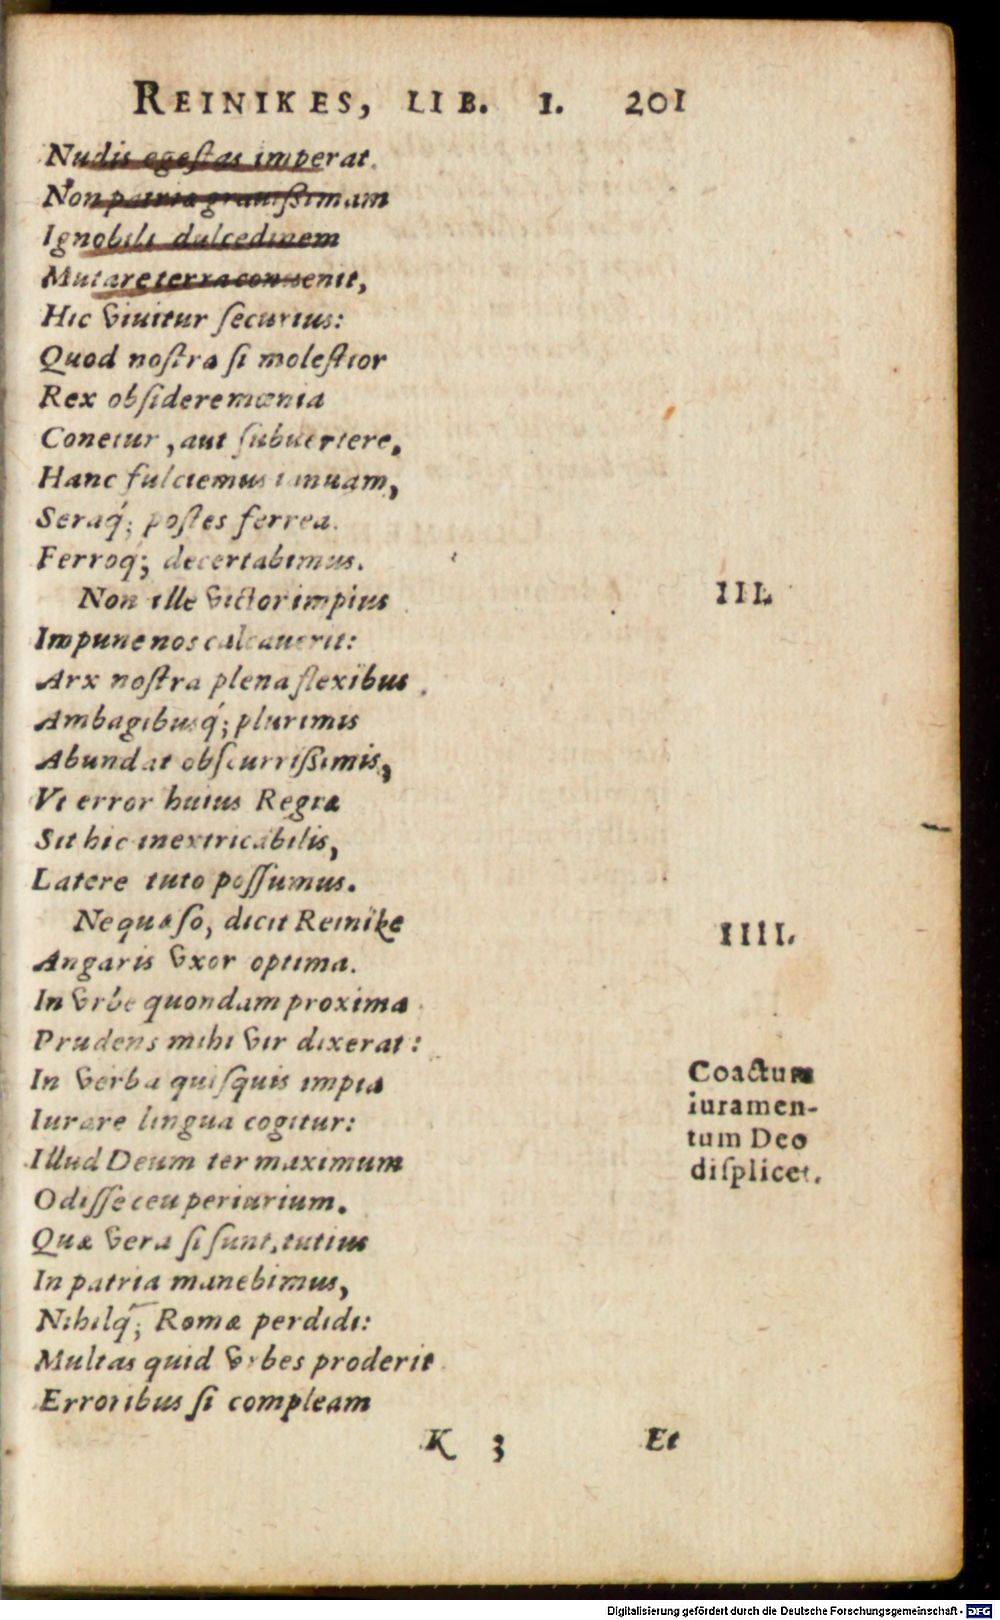 REINIKES, LIB. I. 201
Nudis egeſtas imperat.
Non patriæ grauiſsimam
Ignobili dulcedinem
Mutare terra conuenit,
Hic viuitur ſecurius:
Quod noſtra ſi moleſtior
Rex obſidere mœnia
Conetur, aut ſubuertere,
Hanc fulciemus ianuam,
Seraq́; poſtes ferrea.
Ferroq́; decertabimus.
Non ille victor impius
III.
Impune nos calcauerit:
Arx noſtra plena flexibus
Ambagibusq́; plurimis
Abundat obſcurriſsimis,
Vt error huius Regiæ
Sit hic inextricabilis,
Latere tuto poſſumus.
Ne quæſo, dicit Reinike
IIII.
Angaris vxor optima.
In vrbe quondam proxima
Prudens mihi vir dixerat:
In verba quiſquis impia
Iurare lingua cogitur:
Illud Deum ter maximum
Odiſſe ceu periurium.
Coactum
iuramen-
tum Deo
diſplicet.
Quæ vera ſi ſunt, tutius
In patria manebimus,
Nihilq́; Romæ perdidi:
Multas quid vrbes proderit
Erroribus ſi compleam
K 3 Et
Digitalisierung gefördert durch die Deutsche Forschungsgemeinschaft - DFG